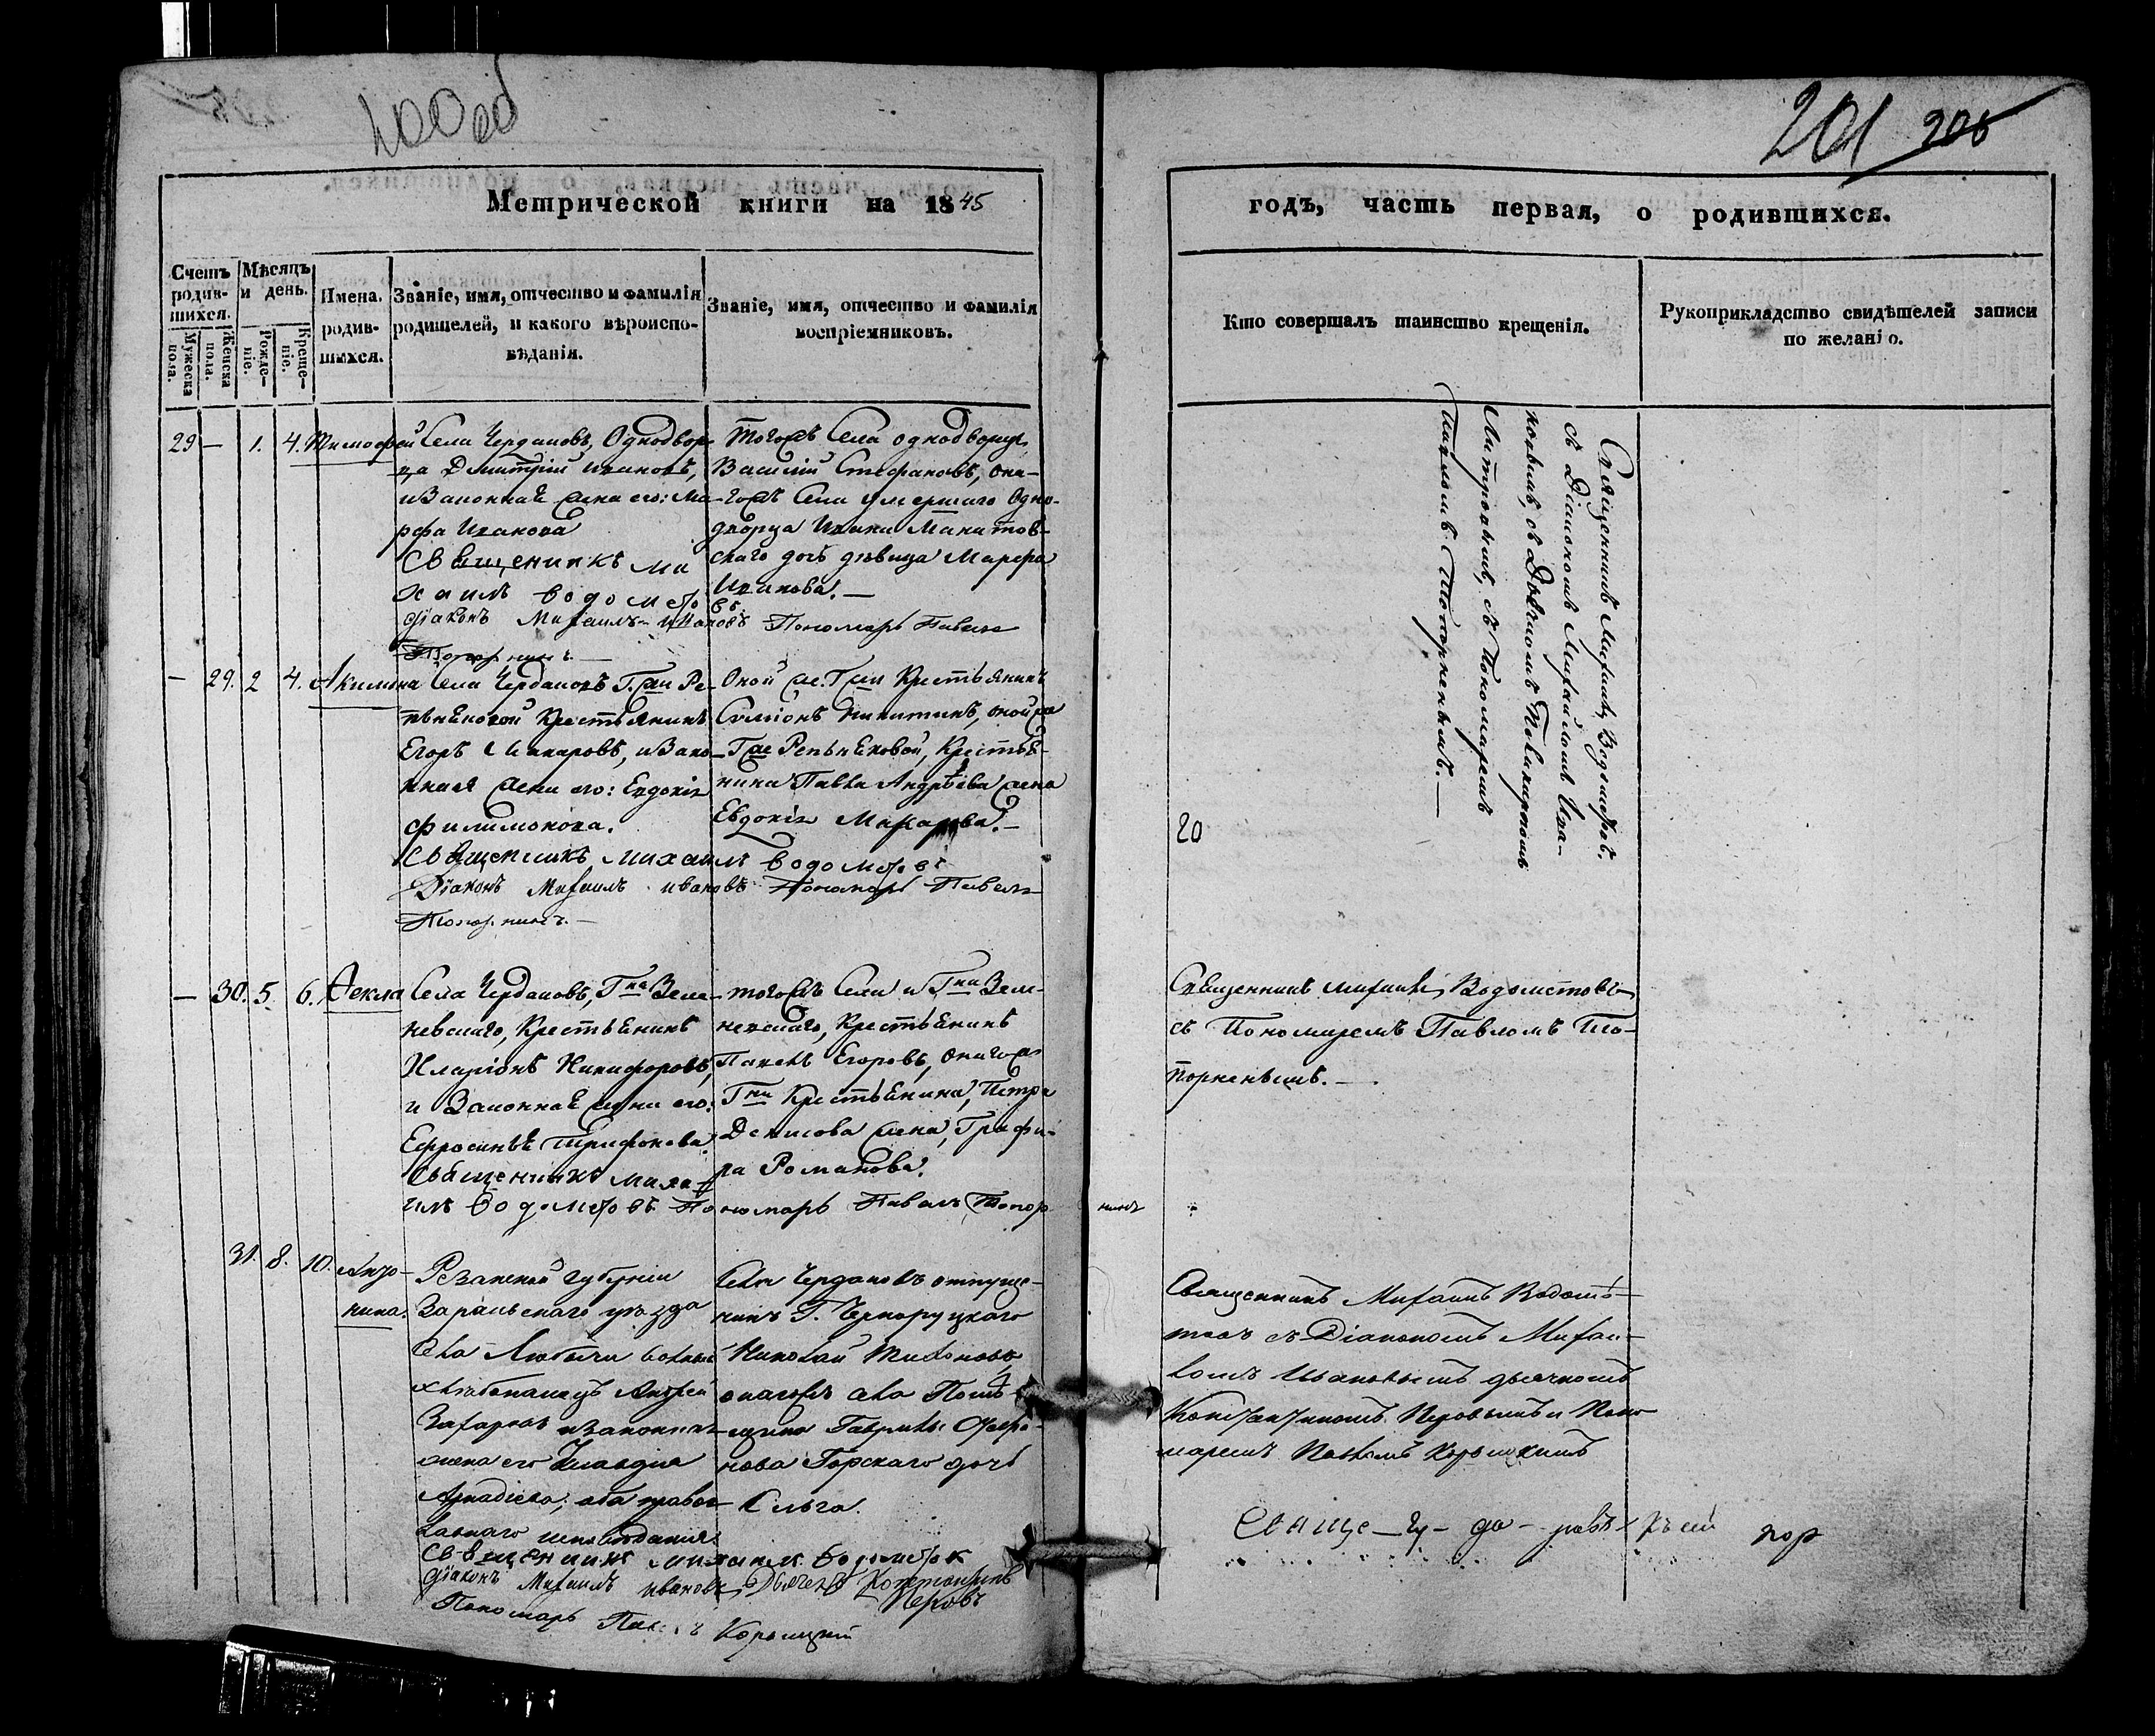 200 об
201 205
Метрической книги на 1845
годъ, часть первая, о родившихся.
Счетъ родившихся.
Мужеска пола.
Женска пола.
Мѣсяцъ и день.
Рожденіе.
Крещеніе.
Имена родившихся.
Званіе, имя, отчество и фамилія
родителей, и какого вѣроиспо-
вѣданія.
Званіе, имя, отчество и фамилія
воспріемниковъ.
Кто совершалъ таинство крещенія.
Рукоприкладство свидѣтелей записи
по желанію.
29 — 1. 4. Тимофей
Села Чердановъ, Однодвор-
ца Дмитрій Ивановъ,
и Законная жена его: Ма-
рфа Иванова
Священникъ Ми
хаилъ Водометовъ
діаконъ Михаилъ Ивановъ Пономарь Павелъ
Топорнинъ. —
тогожъ Села однодворецъ
Василій Стефановъ, она-
гожъ Села умершаго Одно-
дворца Ивана
скаго дочь дѣвица Марфа
Иванова. —
Священникъ Михаилъ Водометовъ.
съ Діакономъ Михайломъ Ива-
новымъ, съ
съ Пономаремъ
Павломъ Топорненымъ. —
— 29. 2 4. Акилина
Села Чердановъ Г. жи Ре-
пѣнковой Крестьянинъ
Егоръ Макаровъ, и Зако-
нная жена его: Евдокія
Филимонова.
Священникъ Михаилъ Водометовъ
Діаконъ Михаилъ Ивановъ Пономарь Павелъ
Топорнинъ. —
Оной же Г жи Крестьянинъ
Симіонъ Никитинъ, оной же
Г жи Репьнѣковой, Крестья-
нина Павла Андрѣева жена
Евдокія Макарова. —
20
— 30. 5. 6. Ѳекла
Села Чердановъ, Гна Зеле-
невскаго, Крестьянинъ
Иларіонъ Никифоровъ,
и Законная жена его:
Ефросинья Трифонова.
Священникъ Миха-
илъ Водометовъ Пономарь Павелъ Топор
нинъ
тогожъ Села и Гна Зеле-
невскаго, Крестьянинъ
Павелъ Егоровъ, онагожъ
Гна Крестьянина, Петра
Денисова жена, Графи-
ра Романова.
Священникъ Михаилъ Водометовъ
съ Пономаремъ Павломъ То-
порненымъ. —
31. 8. 10. Анто-
нина.
Резанской губерніи
Зарайскаго уѣзда
села Любичи вольный
хлѣбопашецъ Андрей
Захаровъ и законная
жена его Клавдія
Аркадіева; оба право-
славнаго исповѣданія
Священникъ Михаилъ Водометов
діаконъ Михаилъ Ивановъ, Дьячекъ Константинъ
Перовъ
Пономарь Корыцкій
Села Чердановъ отпуще-
никъ Г. Чернорутскаго
Николай Тихоновъ,
онагожъ села Помѣ-
щика Гаврилы
нова Горскаго дочь
Ольга.
Священникъ Михаилъ Водоме-
товъ съ Діакономъ Михаи-
ломъ Ивановымъ дьячкомъ
Константиномъ Перовымъ и Поно-
маремъ Павломъ Корыцкимъ